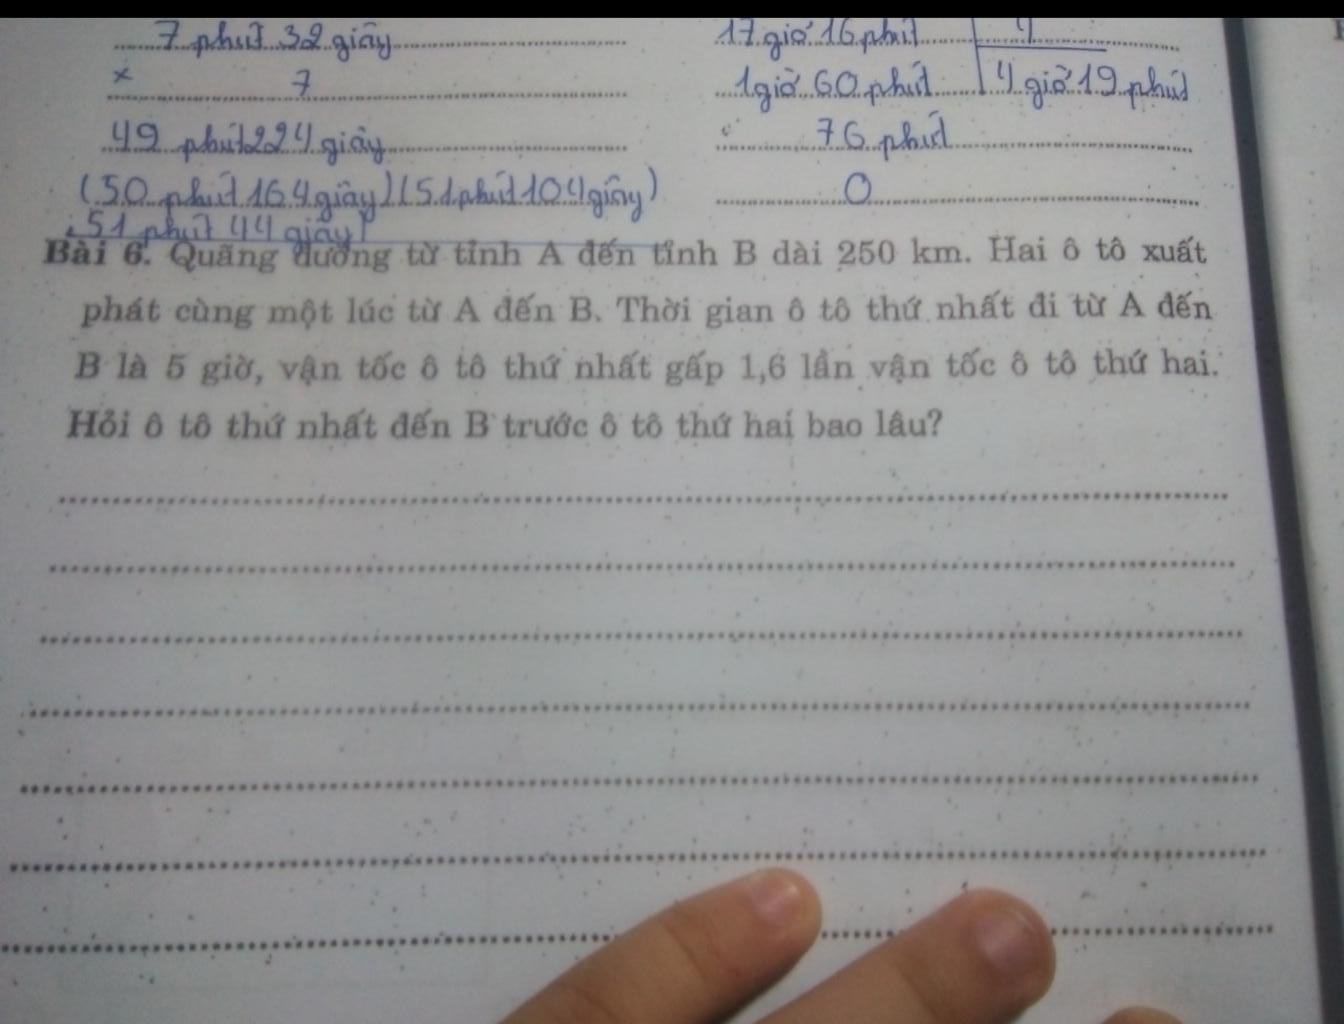 7 phút 32 giây
x 7
49 phút 224 giây
(50 phút 164 giây) (51 phút 104 giây)
51 phút 44 giây
17 giờ 16 phút 4
1 giờ 60 phút 4 giờ 19 phút
76 phút
0
Bài 6. Quãng đường từ tỉnh A đến tỉnh B dài 250 km. Hai ô tô xuất
phát cùng một lúc từ A đến B. Thời gian ô tô thứ nhất đi từ A đến
B là 5 giờ, vận tốc ô tô thứ nhất gấp 1,6 lần vận tốc ô tô thứ hai.
Hỏi ô tô thứ nhất đến B trước ô tô thứ hai bao lâu?